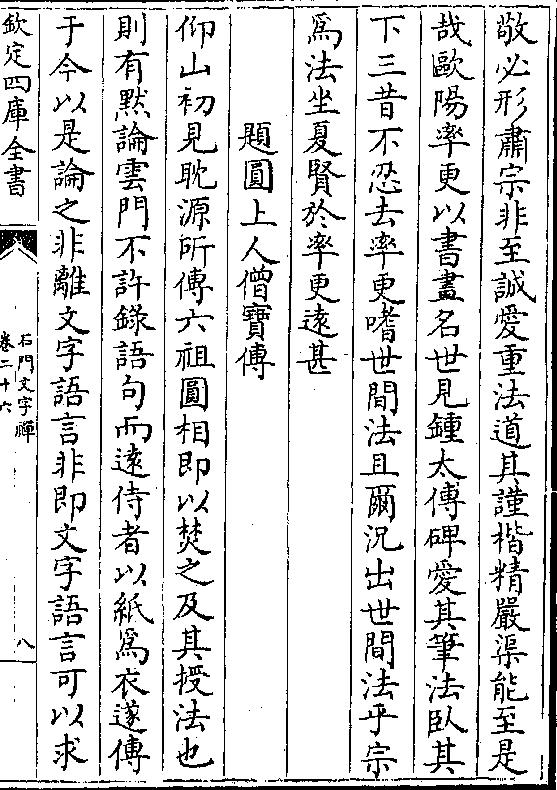 敬必形肅宗非至誠愛重法道其謹楷精嚴渠能至是
哉歐陽率更以書畫名世見鍾太傅碑愛其筆法臥其
下三昔不忍去率更嗜世間法且爾況出世間法乎宗
爲法坐夏賢於率更遠甚
題圓上人僧寶傳
仰山初見耽源所傳六祖圓相即以焚之及其授法也
則有默論雲門不許錄語句而遠侍者以紙爲衣遂傳
于今以是論之非離文字語言非即文字語言可以求
欽定四庫全書
石門文字禪
卷二十六
八